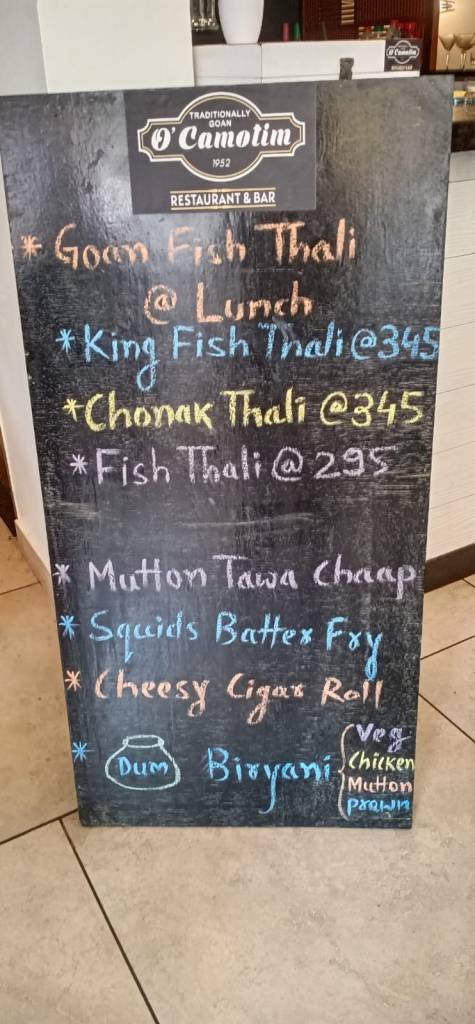 TRADITIONALLY
GOAN
O'Camotim
1952
RESTAURANT & BAR
* Goan Fish Thali
@ Lunch
* King Fish Thali @ 345
* Chonak Thali @ 345
* Fish Thali @ 295
* Mutton Tawa Chaap
* Squids Batter Fry
* Cheesy Cigar Roll
* Dum Biryani { Veg
Chicken
Mutton
Prawn
O'Camotim